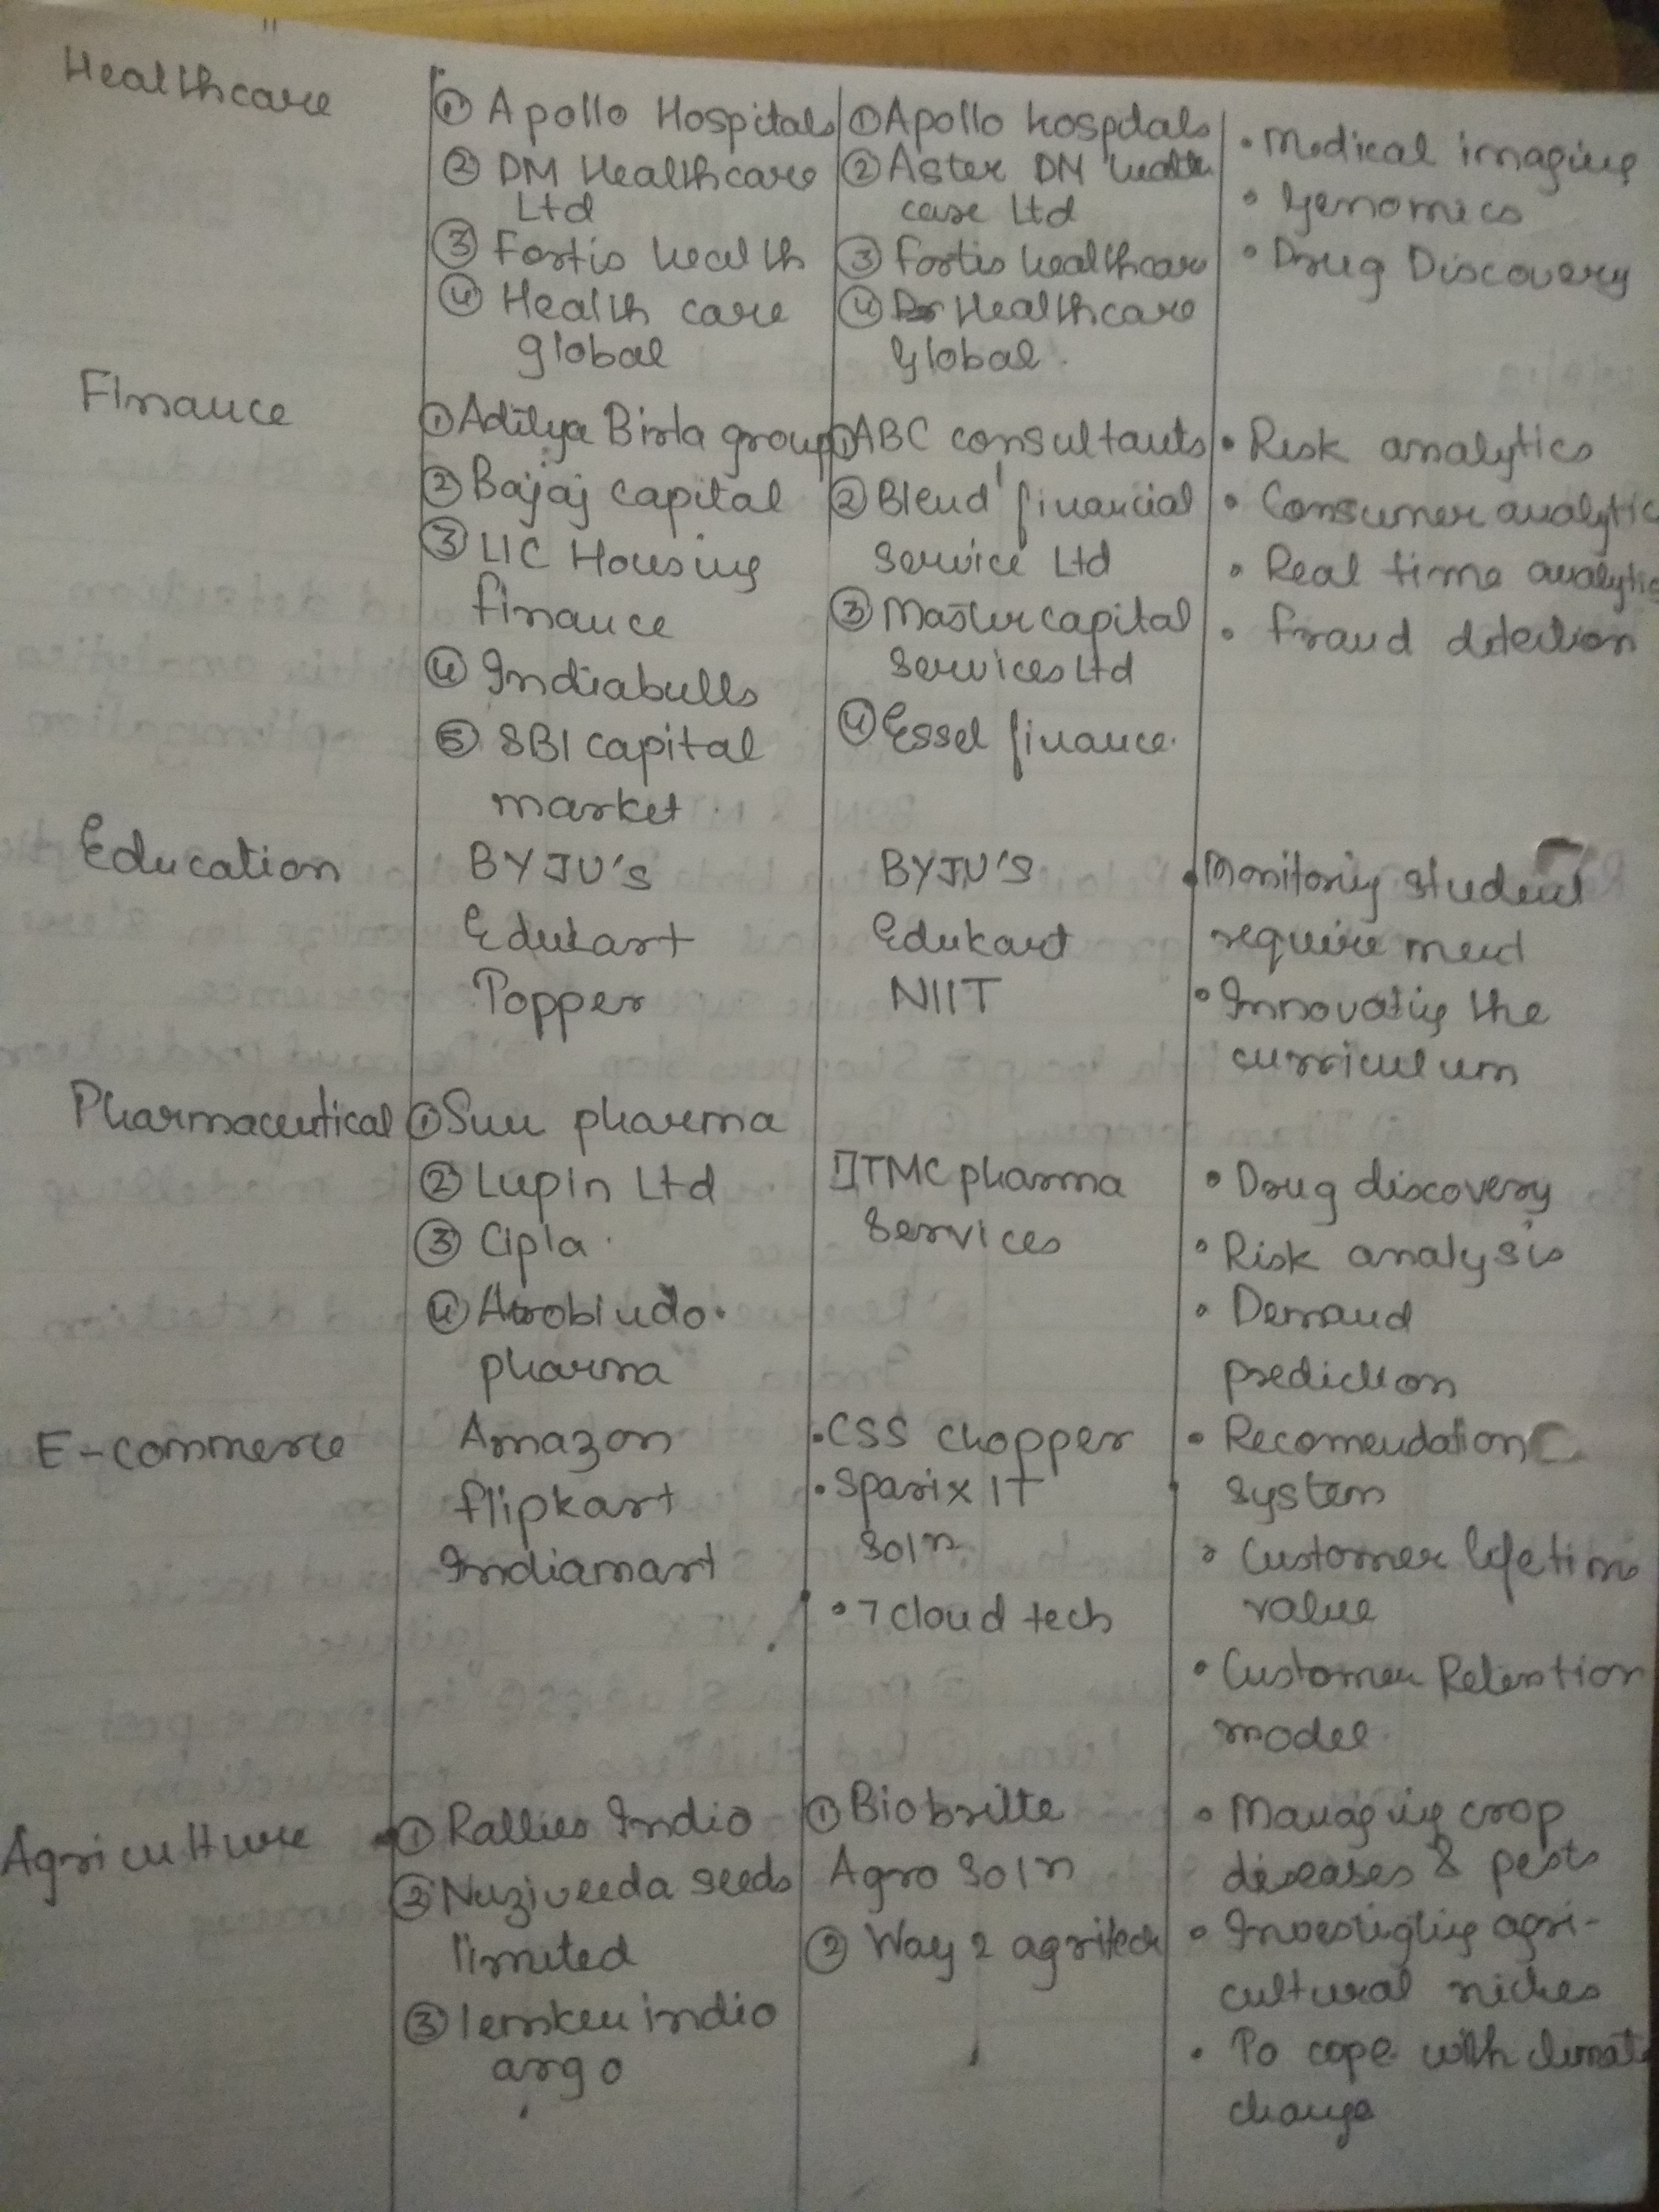 Healthcare
① Apollo Hospitals
② DM Healthcare
Ltd
③ Fortis health
④ Health care
global
① Apollo hospitals
② Aster DM health
care Ltd
③ Fortis healthcare
④ Healthcare
Global.
• Medical imaging
• Genomics
• Drug Discovery
Finance
① Aditya Birla group
② Bajaj capital
③ LIC Housing
finance
④ Indiabulls
⑤ SBI capital
market
① ABC consultants
② Blend financial
Service Ltd
③ Master capital
Services Ltd
④ Essel finance.
• Risk analytics
• Consumer analytic
• Real time analytic
• Fraud detection
Education
BYJU's
Edukart
Topper
BYJU's
Edukart
NIIT
• Monitoring student
requirement
• Innovating the
curriculum
Pharmaceutical
① Sun pharma
② Lupin Ltd
③ Cipla
④ Aurobindo
pharma
TMC pharma
Services
• Drug discovery
• Risk analysis
• Demand
prediction
E-commerce
Amazon
flipkart
Indiamart
• CSS chopper
• Sparix IT
Soln
• 7 cloud tech
• Recomendation
System
• Customer lifetime
value
• Customer Retention
model.
Agriculture
① Rallies India
② Nuziveeda seeds
limited
③ lemken india
argo
① Biobritte
Agro Soln
② Way 2 agritech
• Managing crop
diseases & pests
• Investigting agri-
cultural niches
• To cope with climate
change